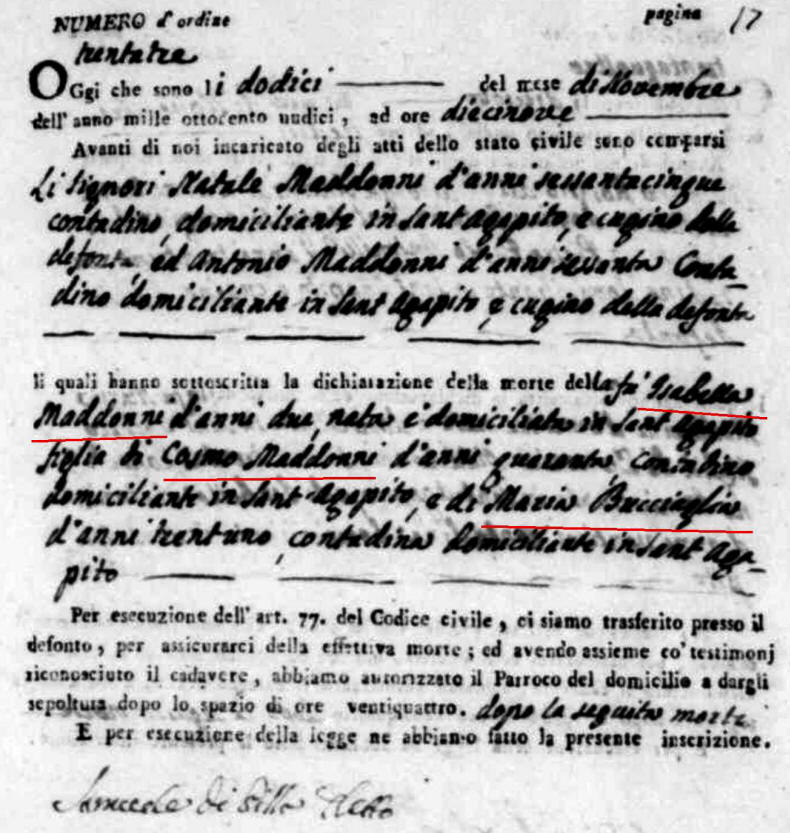 NUMERO d'ordine pagina 17
trentatre
OGgi che sono li dodici del mese di Novembre
dell'anno mille ottocento undici, ad ore diecinove
Avanti di noi incaricato degli atti dello stato civile sono comparsi
Li Signori Natale Maddonni d'anni sessantacinque
contadino, domiciliante in Sant Agapito, e cugino della
defonta, ed Antonio Maddonni d'anni sessanta Conta-
dino domiciliante in Sant Agapito, e cugino della defonta
li quali hanno sottoscritta la dichiarazione della morte della fù Isabella
Maddonni d'anni due, nata e domiciliata in Sant Agapito
figlia di Cosmo Maddonni d'anni quaranta, contadino
domiciliante in Sant Agapito, e di Maria Bucciaglia
d'anni trentuno, contadina domiciliante in Sant Aga-
pito
Per esecuzione dell'art. 77. del Codice civile, ci siamo trasferito presso il
defonto, per assicurarci della effettiva morte; ed avendo assieme co' testimonj
riconosciuto il cadavere, abbiamo autorizzato il Parroco del domicilio a dargli
sepoltura dopo lo spazio di ore ventiquattro. dopo la seguita morte
E per esecuzione della legge ne abbiamo fatto la presente inscrizione.
di